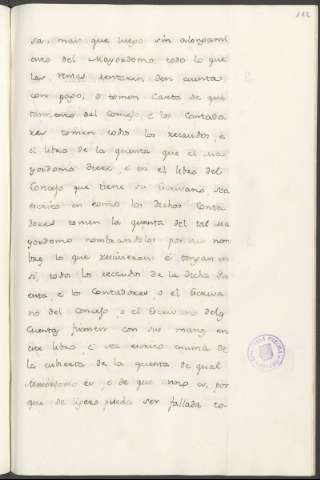 sa, mais que luego sin alongami
ento del Mayordomo todo lo que
las rentas rentaren den cuentas
con pago, o tomen Carta de qui
tamiento del Concejo, e los Contado
res tomen todos los recaudos, e
el libro de la quenta que el Ma
yordomo diere, e en el libro del
Concejo que tiene su Escrivano sea
escrito en como los dichos Conta
dores tomen la quenta del tal Ma
yordomo nombrandolos por su nom
bre, lo que recivieron e tengan en
si, todo los recaudo de la dicha qu
enta, e los Contadores, o el Escriva
no del concejo, o el Escrivano de
Cuentas firmen con sus manos en
este libro, e sea escrito encima de
la cubierta de la quenta de qual
Mayordomo es, e de que año es, por
que de ligero pueda ser fallada co-